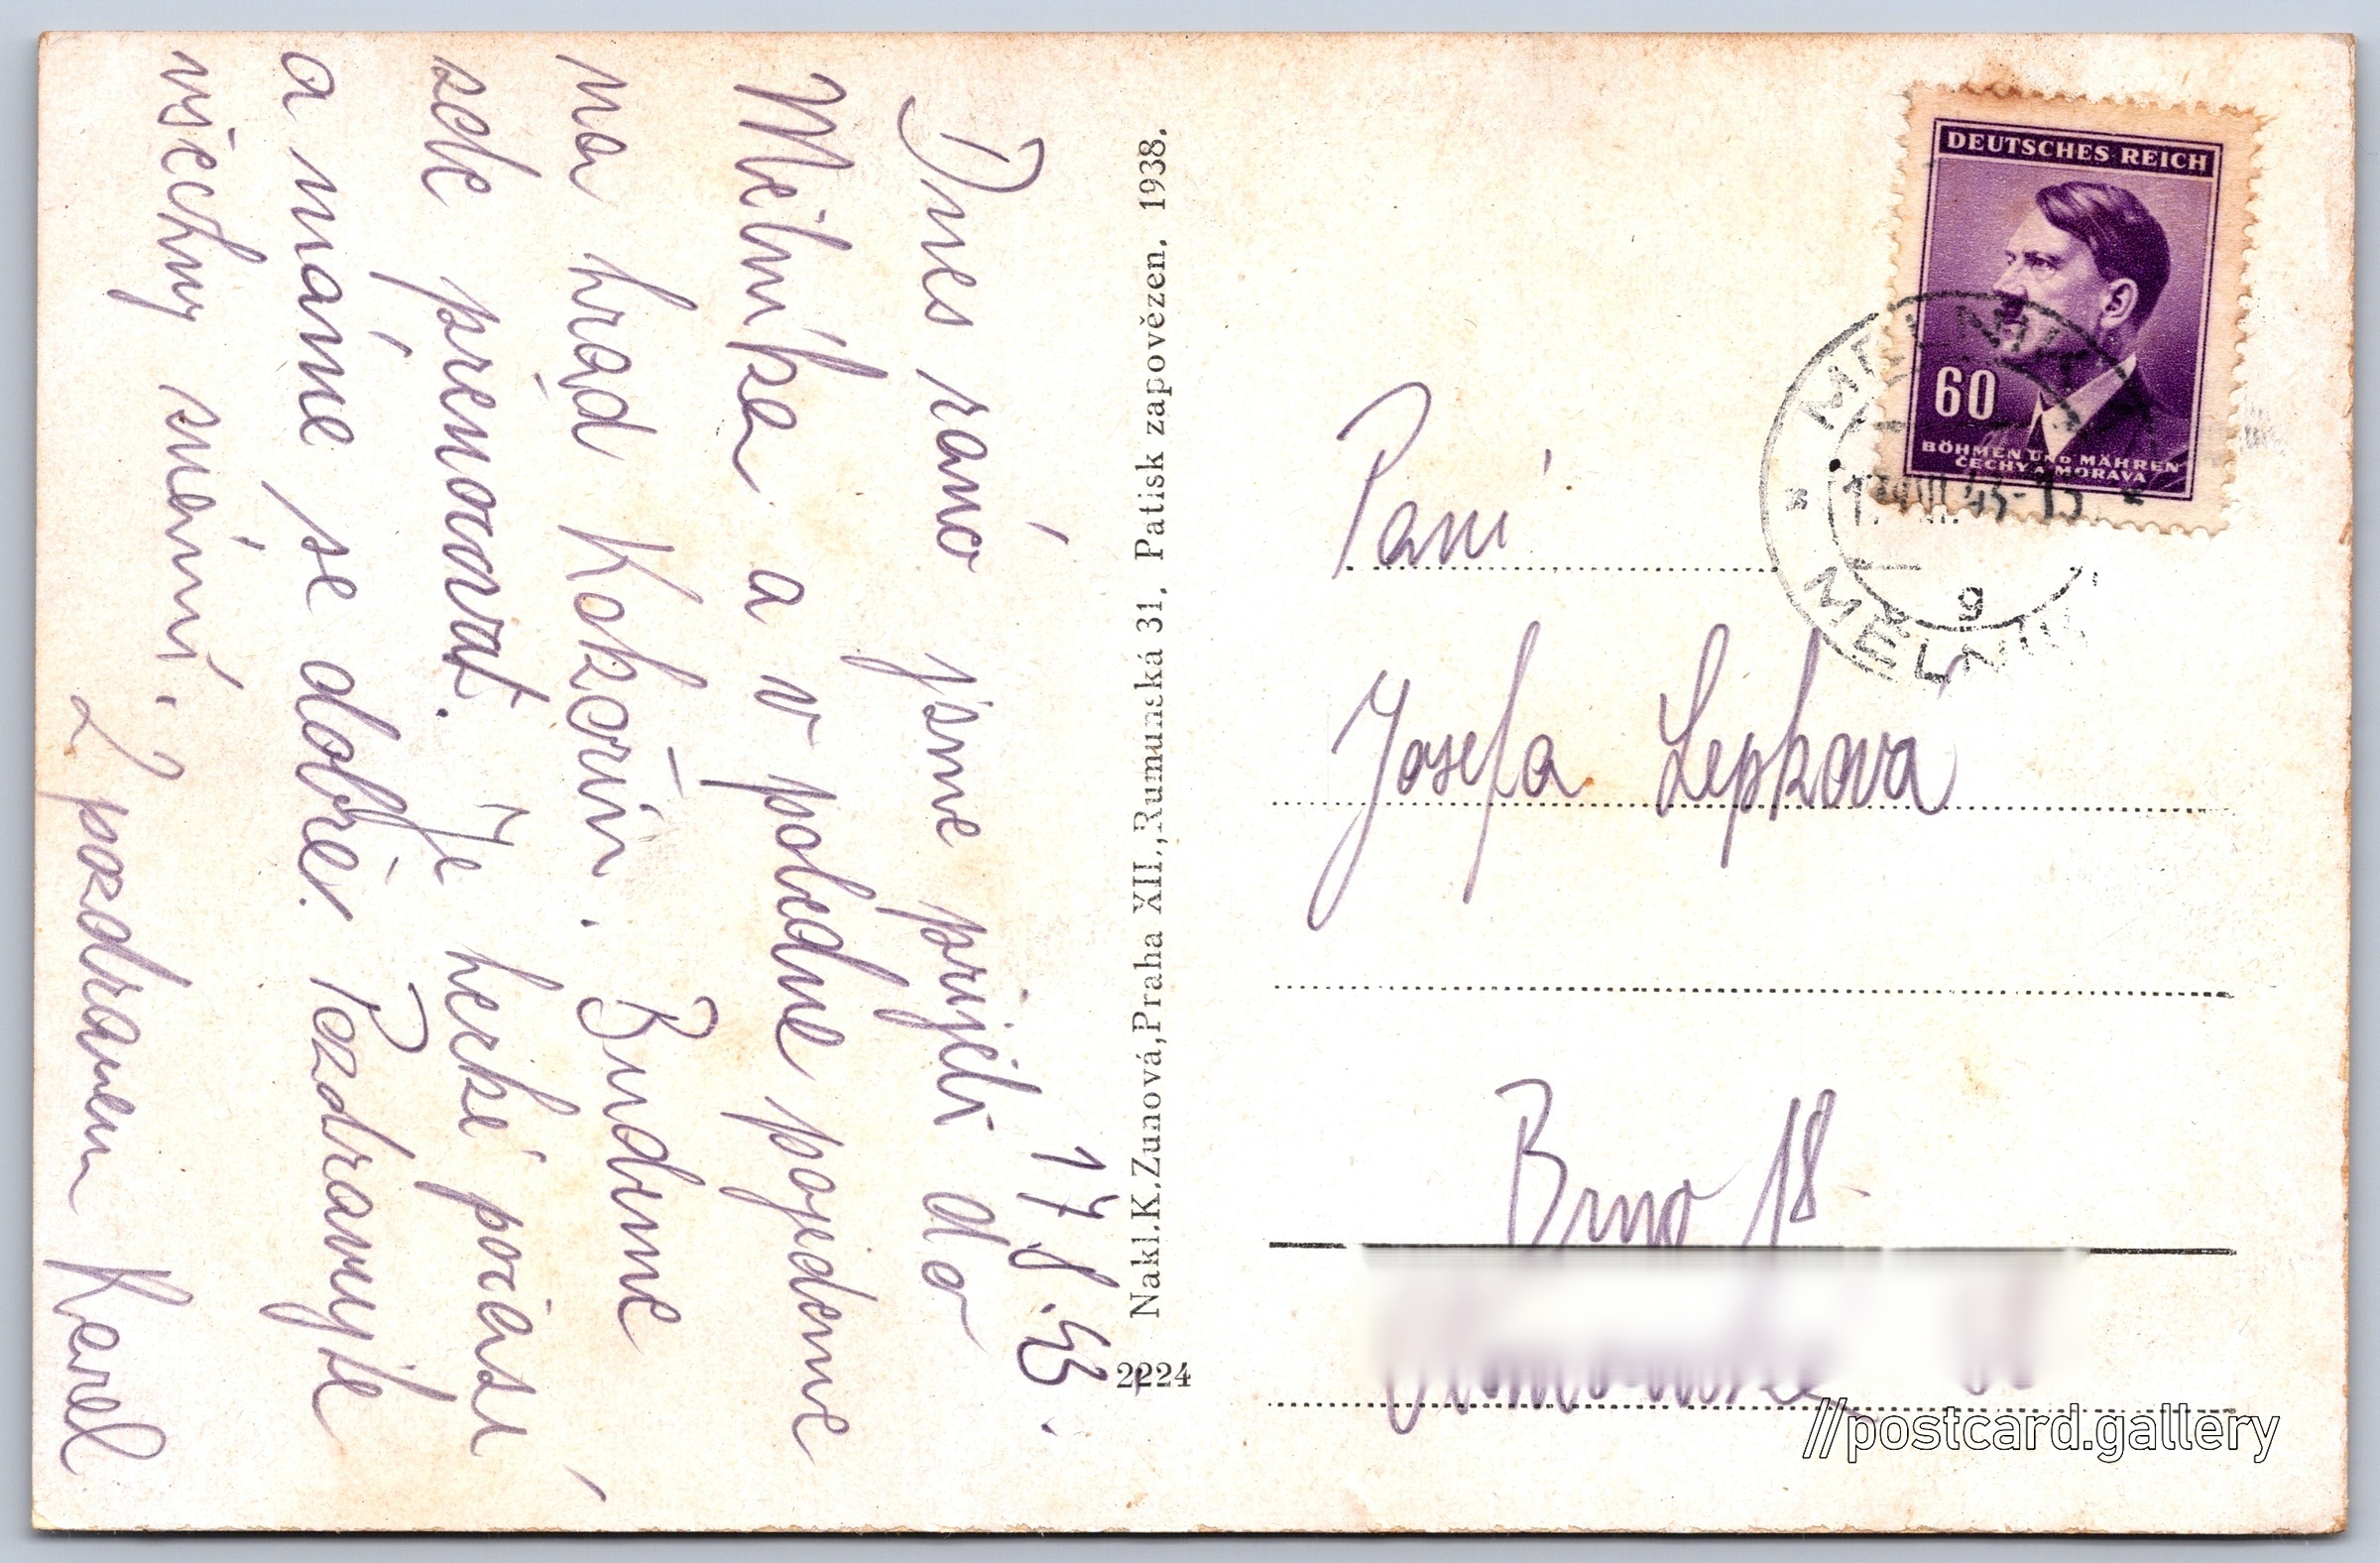 17.8.43.
Dnes ráno jsme prijeli do
Mělníka a v poledne pojedeme
na hrad Kokořín. Budeme
zde přenocovat. Je herké počásí
a máme se dobře. Pozdravujte
všechny známí.
Z pozdravem Karel
Nakl. K. Zunová, Praha XII., Rumunská 31. Patisk zapovězen. 1938.
2224
DEUTSCHES REICH
60
BÖHMEN UND MÄHREN
ČECHY A MORAVA
MELNIK
43-15
9
MĚLNÍK
Paní
Josefa Lepkova
Brno 18
//postcard.gallery